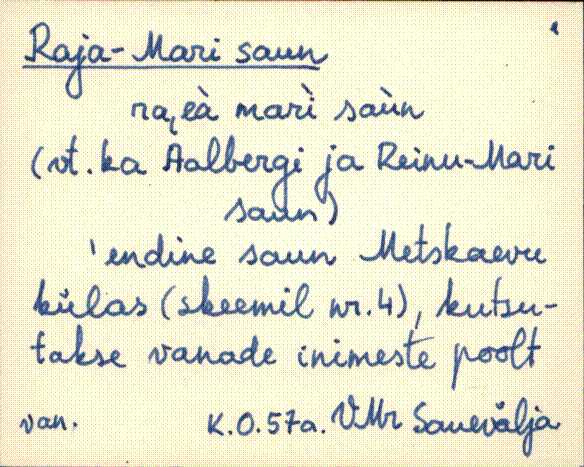 Raja-Mari saun
ra,eà marì saùn
(vt. ka Aalbergi ja Reinu-Mari
saun)
'endine saun Metskaevu
külas (skeemil nr. 4), kutsu-
takse vanade inimeste poolt
van. K.O. 57a. VMr Sauevälja